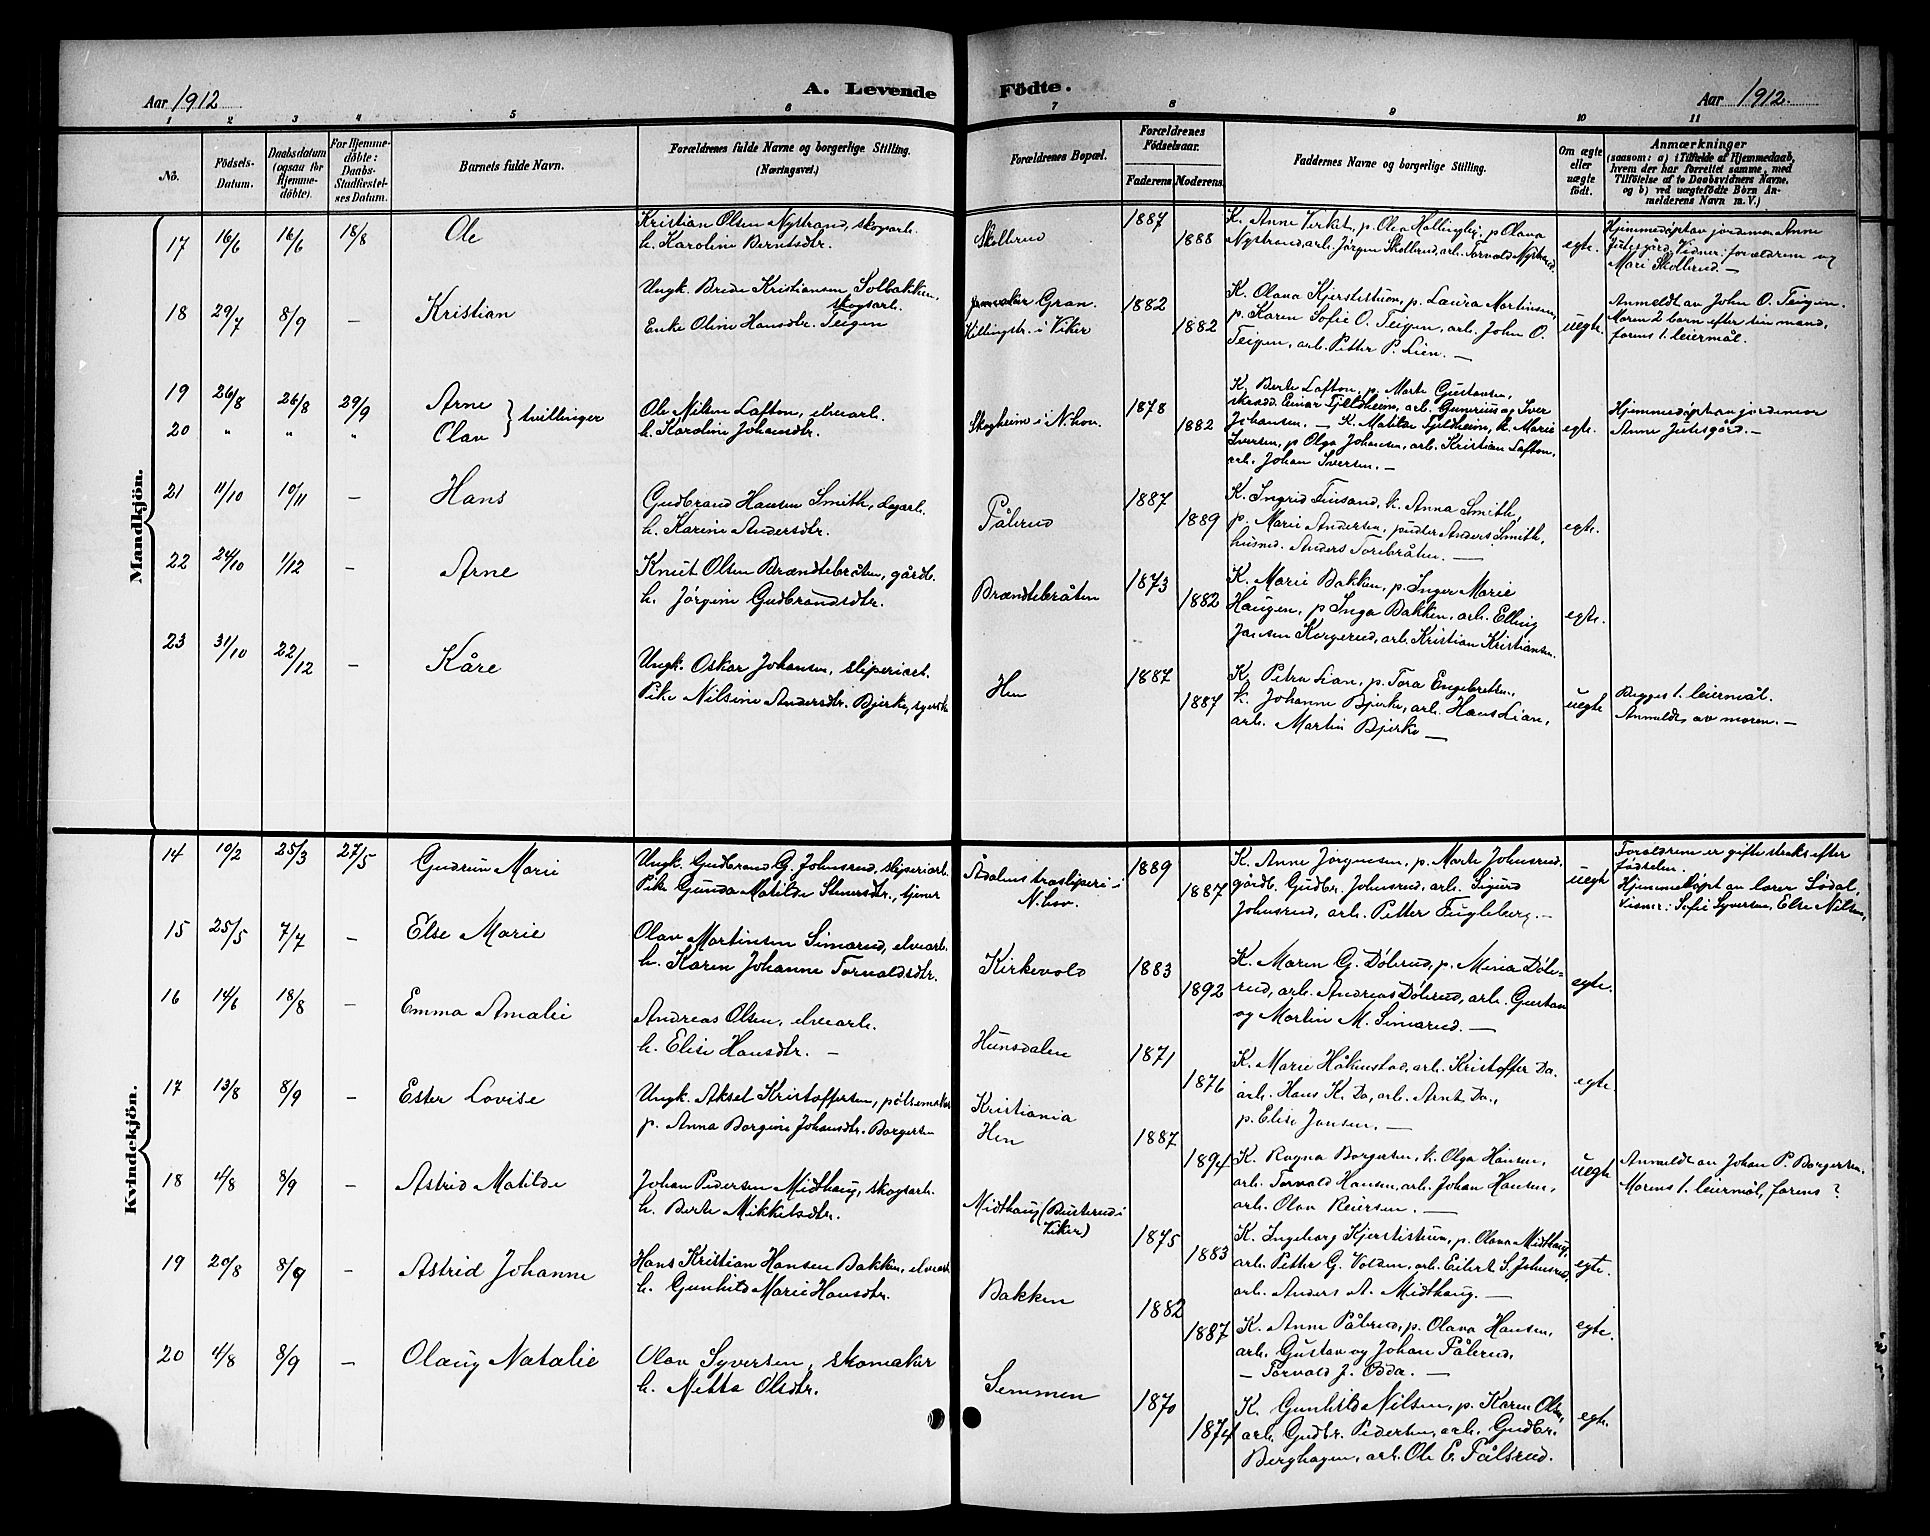 Aar 1912
A. Levende Födte.
Aar 1912.
1 2 3 4 5 6 7 8 9 10 11
No.
Födsels-Datum.
Daabsdatum (ogsaa for Hjemme-döbte).
For Hjemme-döbte: Daabs-Stadfæstel-ses Datum.
Barnets fulde Navn.
Forældrenes fulde Navne og borgerlige Stilling. (Næringsvei.)
Forældrenes Bopæl.
Forældrenes Födselsaar.
Faderens. Moderens.
Faddernes Navne og borgerlige Stilling.
Om ægte eller uægte födt.
Anmærkninger
(saasom: a) i Tilfælde af Hjemmedaab,
hvem der har forrettet samme, med
Tilföielse af to Daabsvidners Navne,
og b) ved uægtefödte Börn An-
melderens Navn m. V.)
Mandkjön.
17 16/6 16/6 18/8 Ole
Kristian Olsen Nystrand, skogarb.
h. Karoline Berntsdtr.
Skollerud
1887
1888
K. Anne Virket, p. Olea Hallingby, p Olava
Nystrand, arb. Jörgen Skollerud, arb. Torvald Nystrand
egte.
Hjemmedöpt av jordmor Anne
Jutesgård. Vidner: forældrene og
Mari Skollerud. —
18 29/7 8/9 — Kristian
Ungk. Brede Kristiansen Solbakken,
skogsarb.
Enke Oline Hansdtr. Teigen
Gran.
Killingstr. i Viker
1882
1882
K. Olava Kjerstistuen, p. Laura Martinsen,
p. Karen Sofie O. Teigen, arb. John O.
Teigen, arb. Petter P. Lien. —
uegte.
Anmeldt av John O. Teigen.
Moren 2 barn efter sin mand,
farens 1. leiermål.
19 26/8 26/8 29/9 Arne
20 " " " Olav
} tvillinger
Ole Nilsen Lafton, elvearb.
h. Karoline Johansdtr.
Skogheim i N. hov.
1878
1882
K. Berte Lafton, p. Marte Gustavsen,
skrædd. Einar Fjeldheim, arb. Gunerius og Iver
Johansen. — K. Matilde Fjeldheim, k. Marie
Iversen, p Olga Johansen, arb. Kristian Lafton,
arb. Johan Iversen. —
egte.
Hjemmedöpt av jordmor
Anne Jutesgård. —
21 11/10 10/11 — Hans
Gudbrand Hansen Smith, dagarb.
h. Karine Andersdtr.
Pålerud
1887
1889
K. Ingrid Finsand, k. Anna Smith,
p. Marie Andersen, Anders Smith,
husmd. Anders Torebråten. —
egte.
22 24/10 1/12 — Arne
Knut Olsen Brændtebråten, gårdb.
h. Jörgine Gudbrandsdtr.
Brændtebråten
1873
1882
K. Marie Bakken, p. Inger Marie
Haugen, p Inga Bakken, arb. Elling
Jansen Korgerud, arb. Kristian Kristiansen.
egte.
23 31/10 22/12 — Kåre
Ungk. Oskar Johansen, sliperiarb.
Pike Nilsine Andersdtr. Bjerke, syerske
Hen
1887
1887
K. Petra Lian, p. Tora Engebretsen,
k. Johanne Bjerke, arb. Hans Lian,
arb. Martin Bjerke —
uegte
Begges 1. leiermål.
Anmeldt av moren. —
Kvindekjön.
14 10/2 25/3 27/5 Gudrun Marie
Ungk. Gudbrand G. Johnsrud, sliperiarb.
Pike Gunda Matilde Stenersdtr., tjener
Ådalens træsliperi i
N. hov.
1889
1887
K. Anne Jörgensen, p. Marte Johnsrud,
gårdb. Gudbr. Johnsrud, arb. Sigurd
Johnsrud, arb. Petter Fugleberg. —
uegte
Forældrene er gifte straks efter
födselen.
Hjemmedöpt av lærer Södal,
Vidner: Sofie Syversen, Else Nilsen.
15 25/5 7/7 — Else Marie
Olav Martinsen Simarud, elvearb.
h. Karen Johanne Torvaldsdtr.
Kirkevold
1883
1892
K. Maren G. Dölerud, p. Mina Döle-
rud, arb. Andreas Dölerud, arb. Gustav
og Martin M. Simarud. —
egte.
16 14/6 18/8 — Emma Amalie
Andreas Olsen, elvearb.
h. Elise Hansdtr. —
Hunsdalen
1871
1876
K. Marie Håkenstad, arb. Kristoffer Do.
arb. Hans K. Do, arb. Arnt Do.,
p. Elise Jansen. —
egte.
17 13/8 8/9 — Ester Lovise
Ungk. Aksel Kristoffersen, pölsemaker
p. Anna Borgine Johansdtr. Borgersen
Kristiania
Hen
1887
1894
K. Ragna Borgersen, k. Olga Hansen,
arb. Torvald Hansen, arb. Johan Hansen,
arb. Olav Reiersen. —
uegte
Anmeldt av Johan P. Borgersen.
Morens 1. leiermål, farens ?
18 4/8 8/9 — Astrid Matilde
Johan Pedersen Midthaug, skogsarb.
h. Berte Mikkelsdtr.
Midthaug (Busterud i
Viker)
1875
1883
K. Ingeborg Kjerstistuen, p. Olava Midthaug,
arb. Petter G. Volden, arb. Eilert S. Johnsrud,
arb. Anders A. Midthaug. —
egte.
19 20/8 8/9 — Astrid Johanne
Hans Kristian Hansen Bakken, elvearb.
h. Gunhild Marie Hansdtr.
Bakken
1882
1887
K. Anne Pålerud, p. Olava Hansen,
arb. Gustav og Johan Pålerud,
— Torvald J. Odda. —
egte.
20 4/8 8/9 — Olaug Natalie
Olav Syversen, skomaker
h. Netta Olsdtr.
Semmen
1870
1874
K. Gunhild Nilsen, p. Karen Olsen,
arb. Gudbr. Pedersen, arb. Gudbr.
Berghagen, arb. Ole E. Pålsrud.
egte.